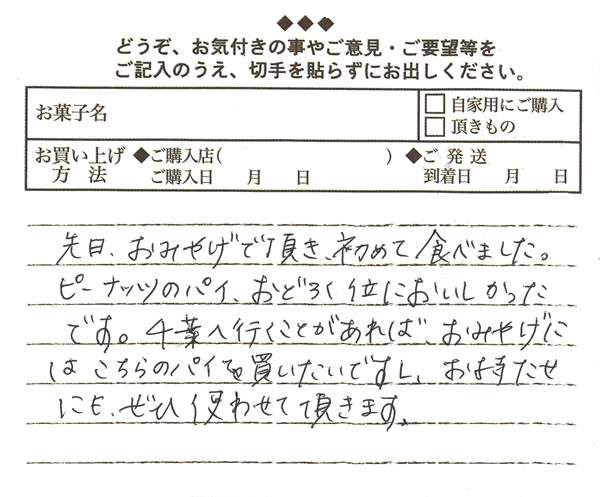 ◆◆◆
どうぞ、お気付きの事やご意見・ご要望等を
ご記入のうえ、切手を貼らずにお出しください。
お菓子名
□ 自家用にご購入
□ 頂きもの
お買い上げ方法
◆ご購入店( )
ご購入日 月 日
◆ご発送
到着日 月 日
先日、おみやげで頂き、初めて食べました。
ピーナッツのパイ、おどろく位においしかった
です。千葉へ行くことがあれば、おみやげに
はこちらのパイを買いたいですし、お持たせ
にも、ぜひ使わせて頂きます。